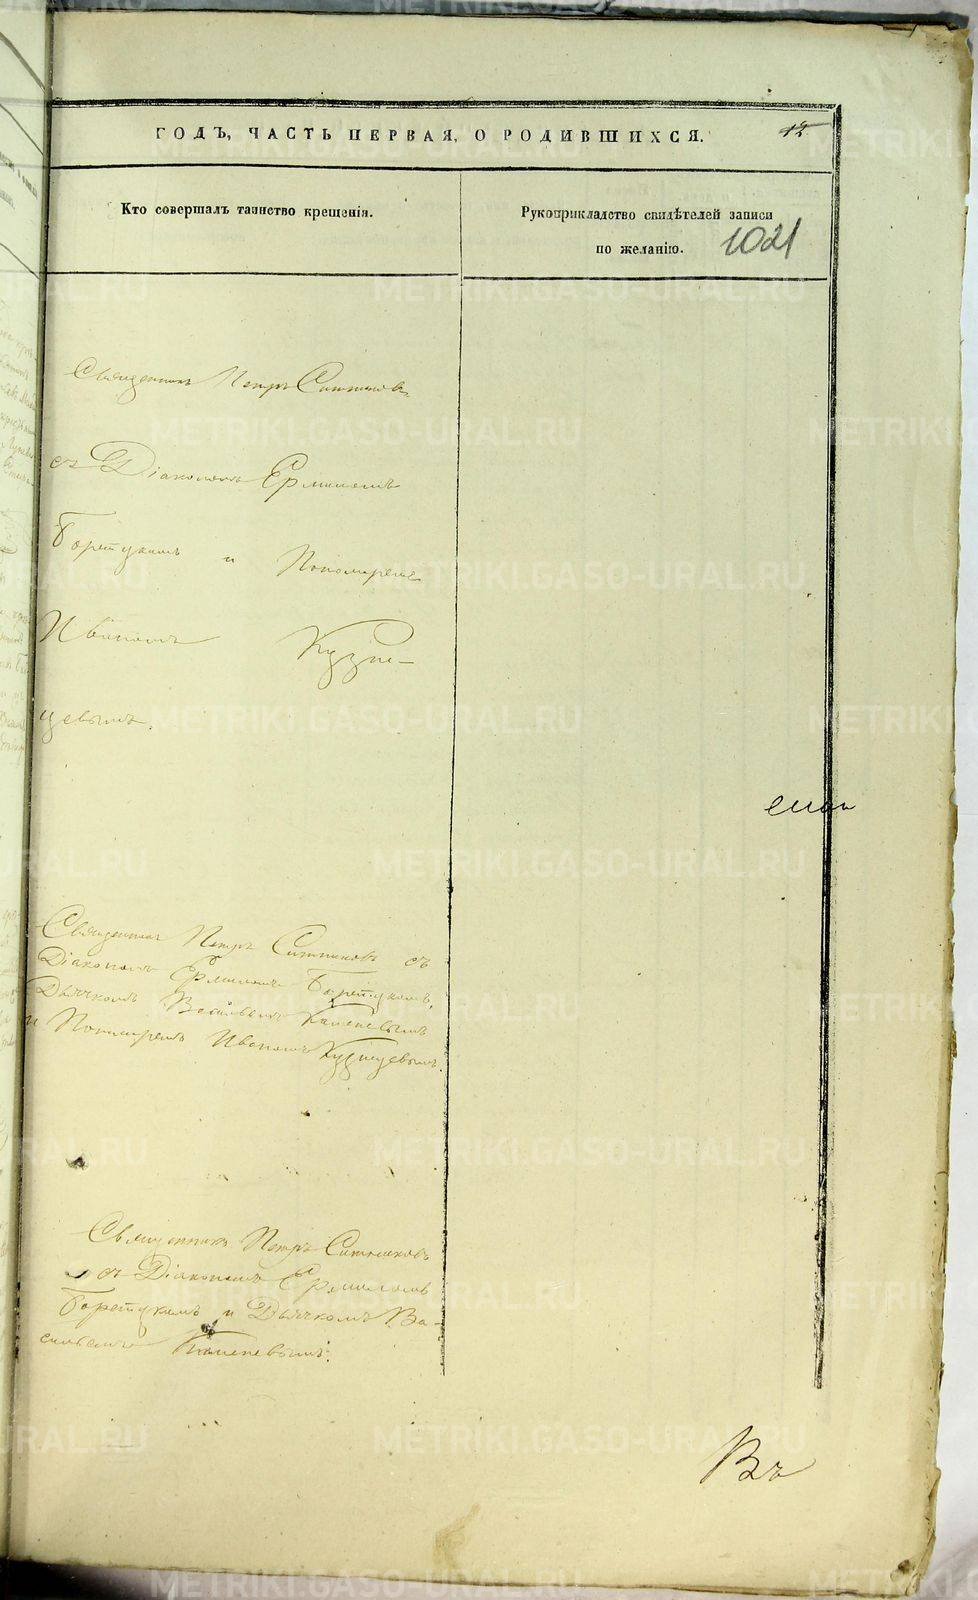 ГОДЪ, ЧАСТЬ ПЕРВАЯ, О РОДИВШИХСЯ.
12
Кто совершалъ таинство крещенія.
Рукоприкладство свидѣтелей записи
по желанію.
1021
Священникъ Петръ Ситниковъ
съ Діакономъ Ермиломъ
и Пономаремъ
Иваномъ Кузне-
цевымъ.
Священникъ Петръ Ситниковъ съ
Діакономъ Ермиломъ
Дьячкомъ Васильемъ Каменевымъ
и Пономаремъ Иваномъ Кузнецевымъ.
Священникъ Петръ Ситниковъ
съ Діакономъ Ермиломъ
и Дьячкомъ Ва-
сильемъ Каменевымъ.
Въ
METRIKI.GASO-URAL.RU